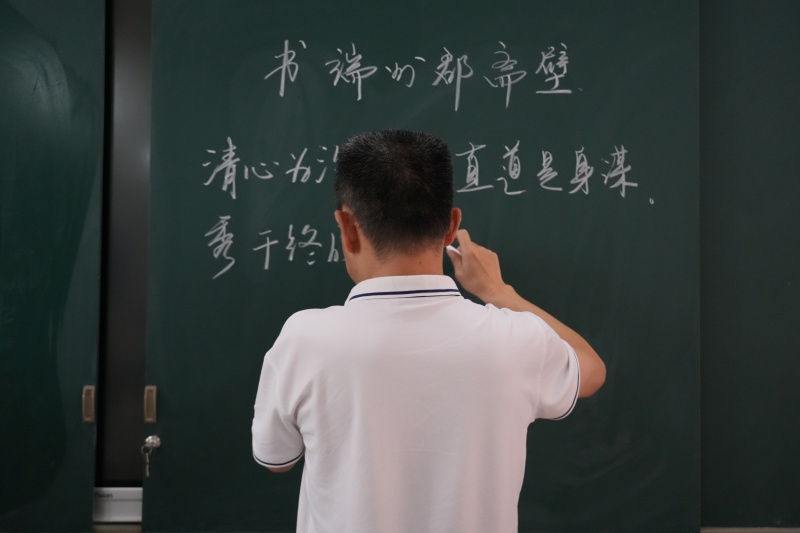 书端州郡斋壁
清心为治 直道是身谋。
秀干终成